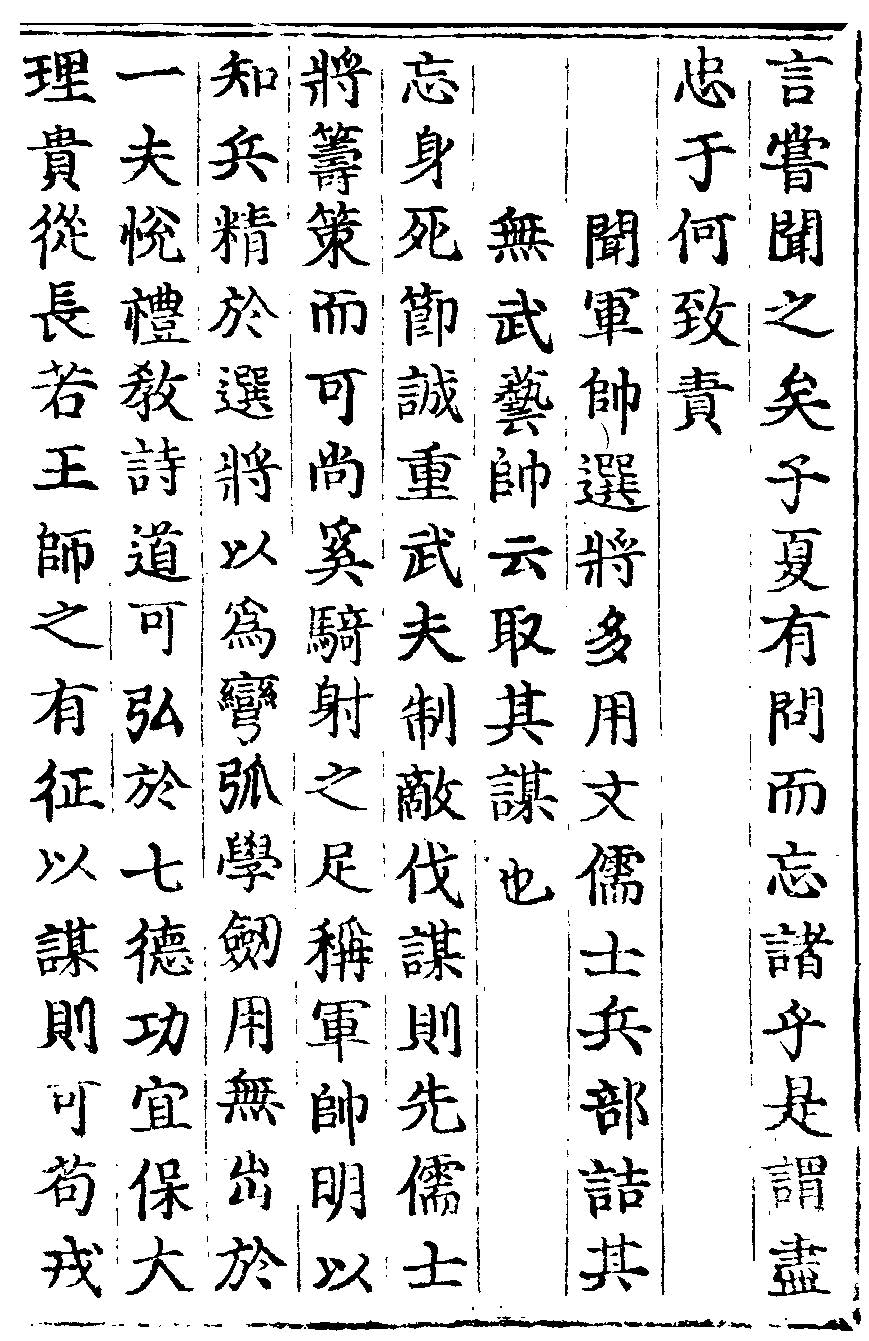 言嘗聞之矣子夏有問而忘諸乎是謂盡
忠于何致責
聞軍帥選將多用文儒士兵部詰其
無武藝帥云取其謀也
忘身死節誠重武夫制敵伐謀則先儒士
將籌策而可尚奚騎射之足稱軍帥明以
知兵精於選將以爲彎弧學劒用無出於
一夫悅禮敎詩道可弘於七德功宜保大
理貴從長若王師之有征以謀則可苟戎